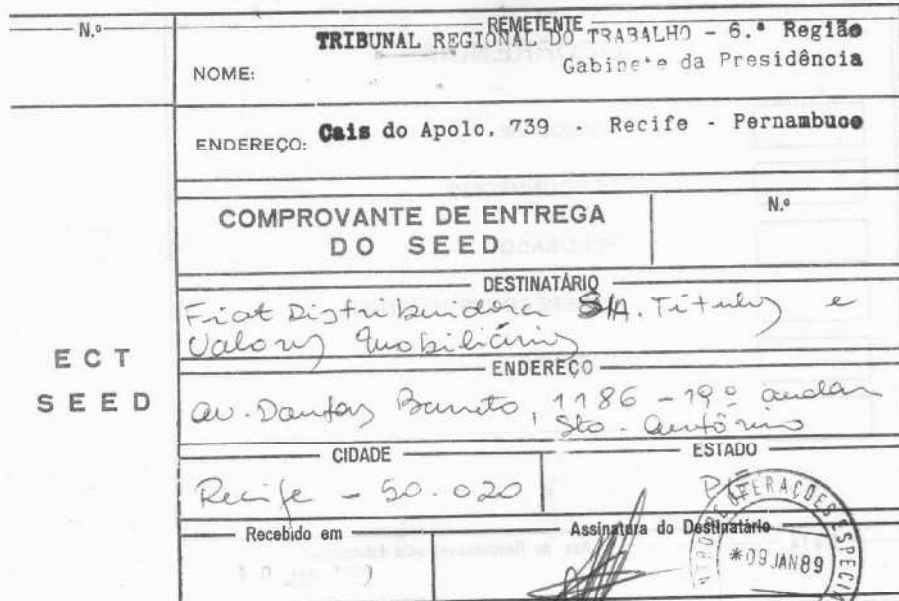 N.º
REMETENTE
TRIBUNAL REGIONAL DO TRABALHO - 6.ª Região
NOME: Gabinete da Presidência
ENDEREÇO: Cais do Apolo, 739 - Recife - Pernambuco
COMPROVANTE DE ENTREGA
DO SEED
N.º
ECT
SEED
DESTINATÁRIO
Fiat Distribuidora S/A. Titulos e
Valores Mobiliários
ENDEREÇO
Av. Dantas Barreto, 1186 - 19º andar
Sto. Antônio
CIDADE
Recife - 50.020
ESTADO
PE
Recebido em
Assinatura do Destinatário
OPERAÇÕES
*09 JAN 89